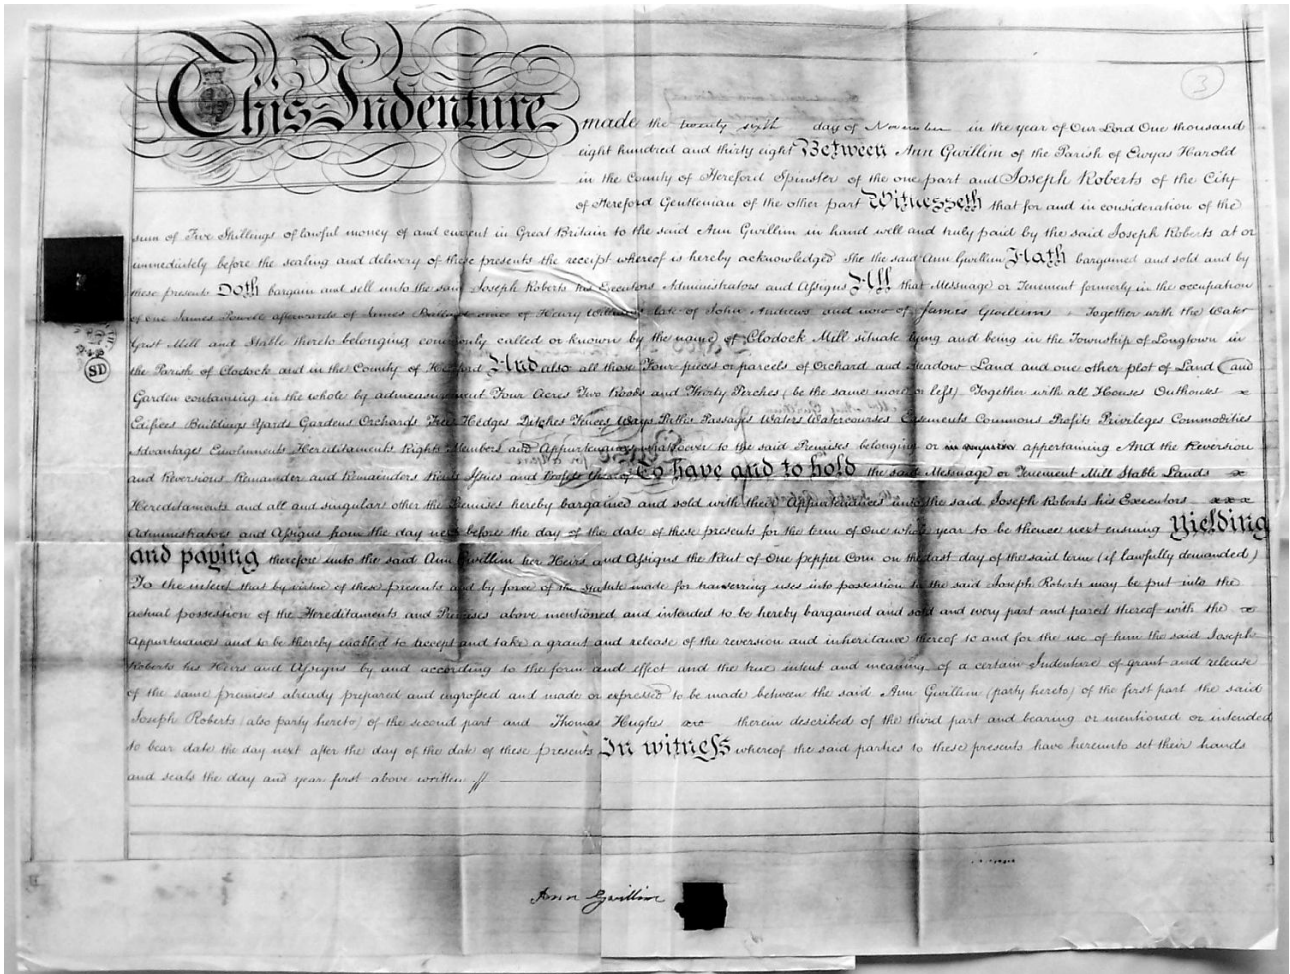 3
This Indenture made the twenty sixth day of November in the year of Our Lord One thousand
eight hundred and thirty eight Between Ann Gwillim of the Parish of Ewyas Harold
in the County of Hereford Spinster of the one part and Joseph Roberts of the City
of Hereford Gentleman of the other part Witnesseth that for and in consideration of the
sum of Five Shillings of lawful money of and current in Great Britain to the said Ann Gwillim in hand well and truly paid by the said Joseph Roberts at or
immediately before the sealing and delivery of these presents the receipt whereof is hereby acknowledged She the said Ann Gwillim Hath bargained and sold and by
these presents Doth bargain and sell unto the said Joseph Roberts his Executors Administrators and Assigns All that Messuage or Tenement formerly in the occupation
of one James Powell afterwards of James since of Henry Williams late of John Andrews and now of James Gwillim Together with the Water
Grist Mill and Stable thereto belonging commonly called or known by the name of Clodock Mill situate lying and being in the Township of Longtown in
the Parish of Clodock and in the County of Hereford And also all those Four pieces or parcels of Orchard and Meadow Land and one other plot of Land (and
Garden containing in the whole by admeasurement Four Acres Two Roods and Thirty Perches (be the same more or less) Together with all Houses Outhouses x
Edifices Buildings Yards Gardens Orchards Trees Hedges Ditches Fences Ways Paths Passages Waters Watercourses Easements Commons Profits Privileges Commodities
Advantages Emoluments Hereditaments Rights Members and Appurtenances whatsoever to the said Premises belonging or appertaining And the Reversion
and Reversions Remainder and Remainders Rents Issues and Profits thereof To have and to hold the said Messuage or Tenement Mill Stable Lands x
Hereditaments and all and singular other the Premises hereby bargained and sold with their Appurtenances unto the said Joseph Roberts his Executors x x x
Administrators and Assigns from the day next before the day of the date of these presents for the term of One whole year to be thence next ensuing Yielding
and paying therefore unto the said Ann Gwillim her Heirs and Assigns the Rent of One pepper Corn on the last day of the said term (if lawfully demanded)
To the intent that by virtue of these Presents and by force of the Statute made for transferring uses into possession to the said Joseph Roberts may be put into the
actual possession of the Hereditaments and Premises above mentioned and intended to be hereby bargained and sold and every part and parcel thereof with the x
Appurtenances and to be thereby enabled to accept and take a grant and release of the reversion and inheritance thereof to and for the use of him the said Joseph
Roberts his Heirs and Assigns by and according to the form and effect and the true intent and meaning of a certain Indenture of grant and release
of the same premises already prepared and engrossed and made or expressed to be made between the said Ann Gwillim (party hereto) of the first part the said
Joseph Roberts (also party hereto) of the second part and Thomas Hughes therein described of the third part and bearing or mentioned or intended
to bear date the day next after the day of the date of these Presents In witness whereof the said parties to these presents have hereunto set their hands
and seals the day and year first above written
SD
Ann Gwillim